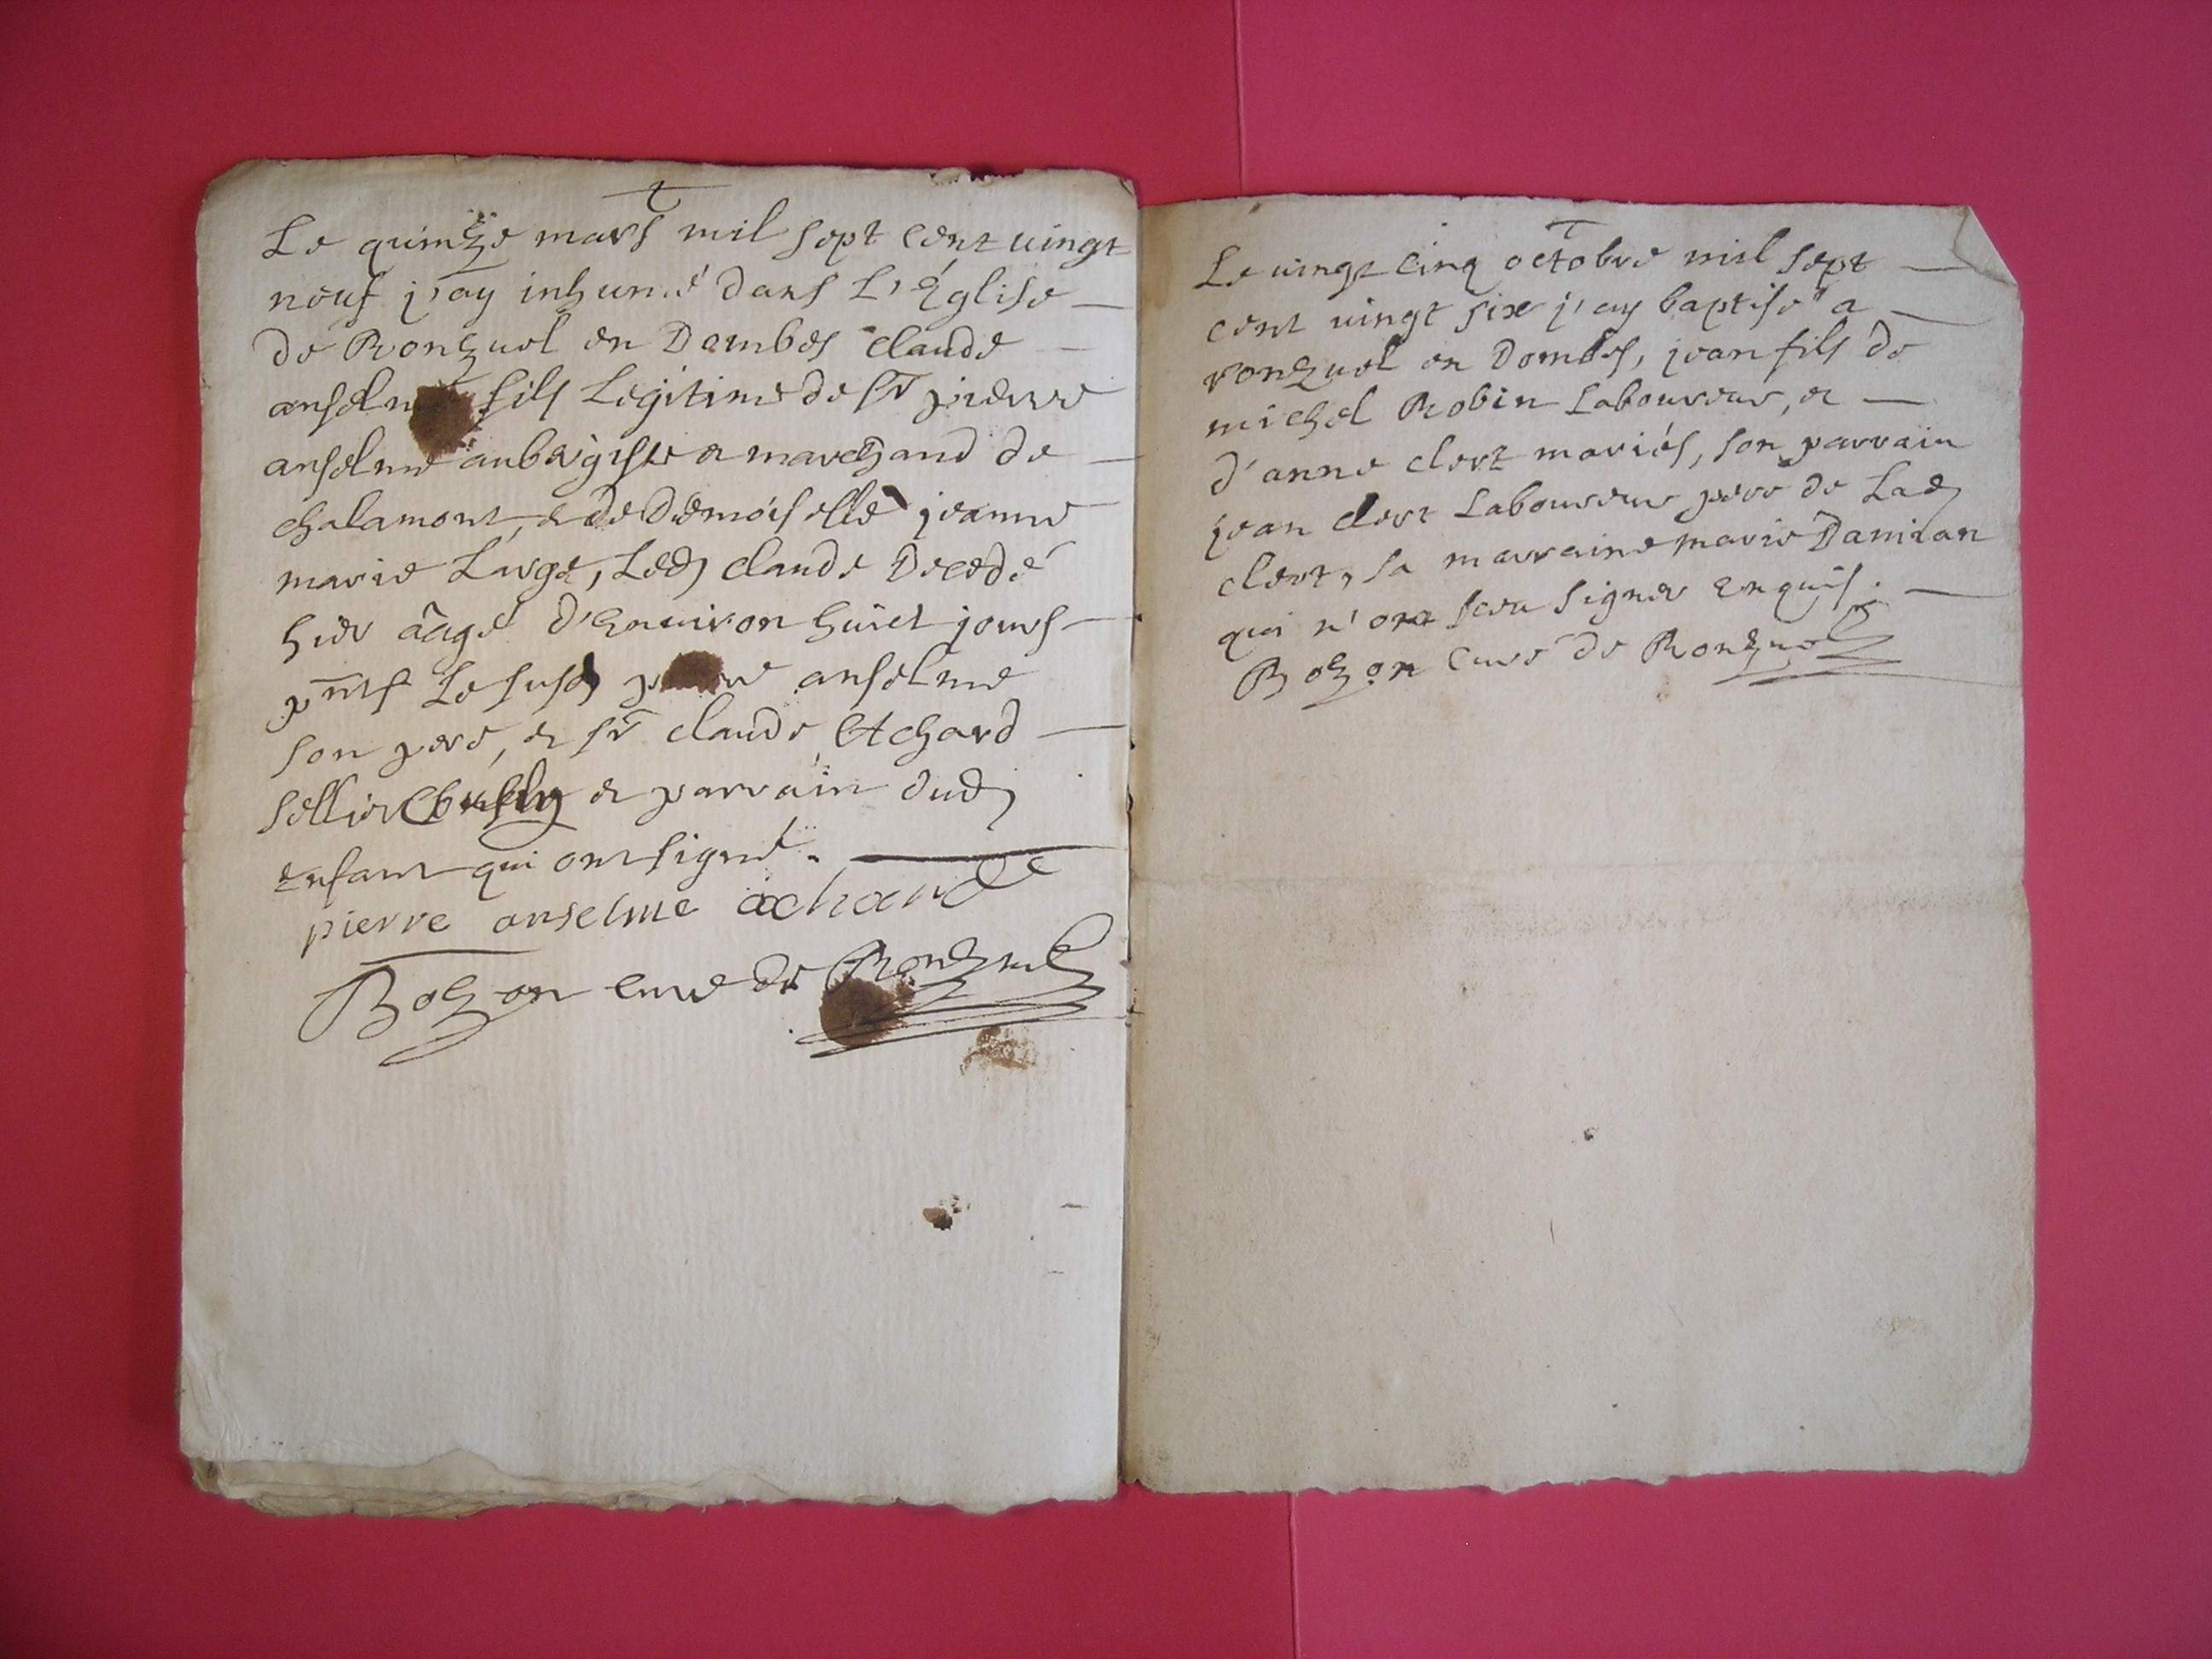 Le quinze mars mil sept cent vingt
neuf j'ay inhumé dans L'Eglise
de Ronzuel en Dombes claude
anselme fils Legitime de sr pierre
anselme aubergiste et marchand de
chalamont, et de Demoiselle jeanne
marie Large, Led claude Decedé
hier âagé d'Environ huict jours
pnts Le susd pierre anselme
son pere, et sr claude Achard
sellier et parrain dud
enfant qui ont signé.
pierre anselme achard
Bozon curé de Ronzuel
Le vingt cinq octobre mil sept
cent vingt six j'ay baptisé a
ronzuel en Dombes, jean fils de
michel Robin Laboureur, et
d'anne clert mariés, son parrain
jean clert Laboureur pere de Lad
clert, sa marraine marie Damian
qui n'ont sceu signer Enquis.
Bozon curé de Ronzuel